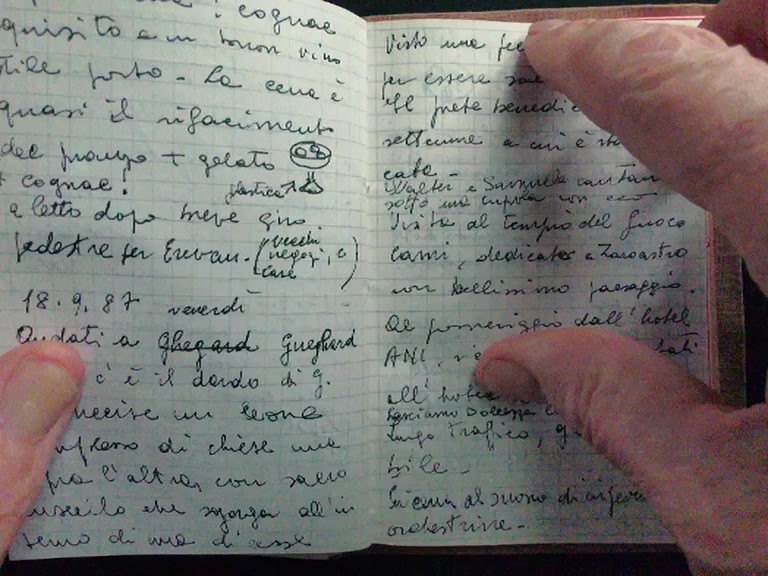 cognac
quisito e un buon vino
tile porto - La cena è
quasi il rifacimento
del pranzo + gelato
+ cognac! plastica
a letto dopo breve giro
pedestre per Erevan. (vecchi
negozi, e
case)
18.9.87 venerdì
Andati a Ghegard Gueghard
c'è il dardo di G.
uccise un leone
di chiese una
l'altra, con sacro
ruscello che sgorga all'in
terno di una di esse
Visto una
per essere
Il prete benedic
settenne a cui è
cato -
Walter e Samuele cantan
sotto una cupola con eco
Visita al tempio del fuoco
Garni, dedicato a Zaroastro
con bellissimo paesaggio.
Al pomeriggio dall'hotel
ANI,
all'hotel
lasciamo
lungo traffico,
bile -
In cena al suono di
orchestrine -